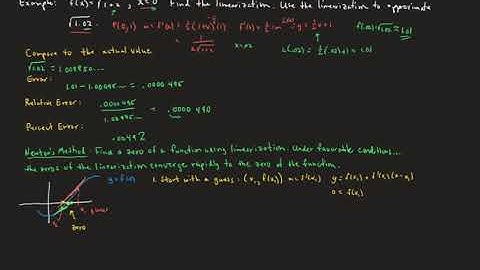 Example: f(x)=√1+x, x=0 Find the linearization. Use the linearization to approximate
√1.02. P(0,1) m=f'(x)= ½(1+x)^(1) f'(0)=½=m L(x)=y=½x+1 f(.02)=√1.02≈1.01
1/(2√1+x) x=.02 L(.02)=½(.02)+1=1.01
Compare to the actual value
√1.02=1.009950....
Error:
1.01-1.00995...=.0000495
Relative Error: .0000495/1.00995... = .0000490
Percent Error:
.0049%
Newton's Method: Find a zero of a function using linearization. Under favorable conditions...
the zeros of the linearization converge rapidly to the zero of the function.
y=f(x) 1. Start with a guess: (x₁, f(x₁)) m=f'(x₁) y=f(x₁)+f'(x₁)(x-x₁)
0=f(x₁)
zero